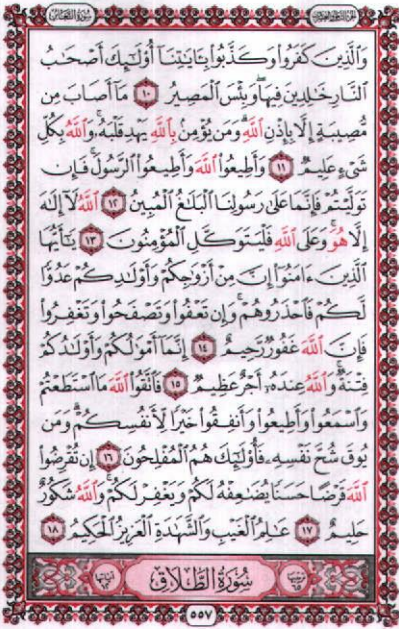 سورة التغابن
وَالَّذِينَ كَفَرُوا وَكَذَّبُوا بِـَٔايَٰتِنَآ أُو۟لَٰٓئِكَ أَصْحَٰبُ
النَّارِ خَٰلِدِينَ فِيهَا وَبِئْسَ الْمَصِيرُ ١٠ مَآ أَصَابَ مِن
مُّصِيبَةٍ إِلَّا بِإِذْنِ اللَّهِ وَمَن يُؤْمِنۢ بِاللَّهِ يَهْدِ قَلْبَهُۥ وَاللَّهُ بِكُلِّ
شَىْءٍ عَلِيمٌ ١١ وَأَطِيعُوا اللَّهَ وَأَطِيعُوا الرَّسُولَ فَإِن
تَوَلَّيْتُمْ فَإِنَّمَا عَلَىٰ رَسُولِنَا الْبَلَٰغُ الْمُبِينُ ١٢ اللَّهُ لَآ إِلَٰهَ
إِلَّا هُوَ وَعَلَى اللَّهِ فَلْيَتَوَكَّلِ الْمُؤْمِنُونَ ١٣ يَٰٓأَيُّهَا
الَّذِينَ ءَامَنُوٓا إِنَّ مِنْ أَزْوَٰجِكُمْ وَأَوْلَٰدِكُمْ عَدُوًّا
لَّكُمْ فَاحْذَرُوهُمْ وَإِن تَعْفُوا وَتَصْفَحُوا وَتَغْفِرُوا
فَإِنَّ اللَّهَ غَفُورٌ رَّحِيمٌ ١٤ إِنَّمَآ أَمْوَٰلُكُمْ وَأَوْلَٰدُكُمْ
فِتْنَةٌ وَاللَّهُ عِندَهُۥٓ أَجْرٌ عَظِيمٌ ١٥ فَاتَّقُوا اللَّهَ مَا اسْتَطَعْتُمْ
وَاسْمَعُوا وَأَطِيعُوا وَأَنفِقُوا خَيْرًا لِّأَنفُسِكُمْ وَمَن
يُوقَ شُحَّ نَفْسِهِۦ فَأُو۟لَٰٓئِكَ هُمُ الْمُفْلِحُونَ ١٦ إِن تُقْرِضُوا
اللَّهَ قَرْضًا حَسَنًا يُضَٰعِفْهُ لَكُمْ وَيَغْفِرْ لَكُمْ وَاللَّهُ شَكُورٌ
حَلِيمٌ ١٧ عَٰلِمُ الْغَيْبِ وَالشَّهَٰدَةِ الْعَزِيزُ الْحَكِيمُ ١٨
سُورَةُ الطَّلَاقِ
٥٥٧